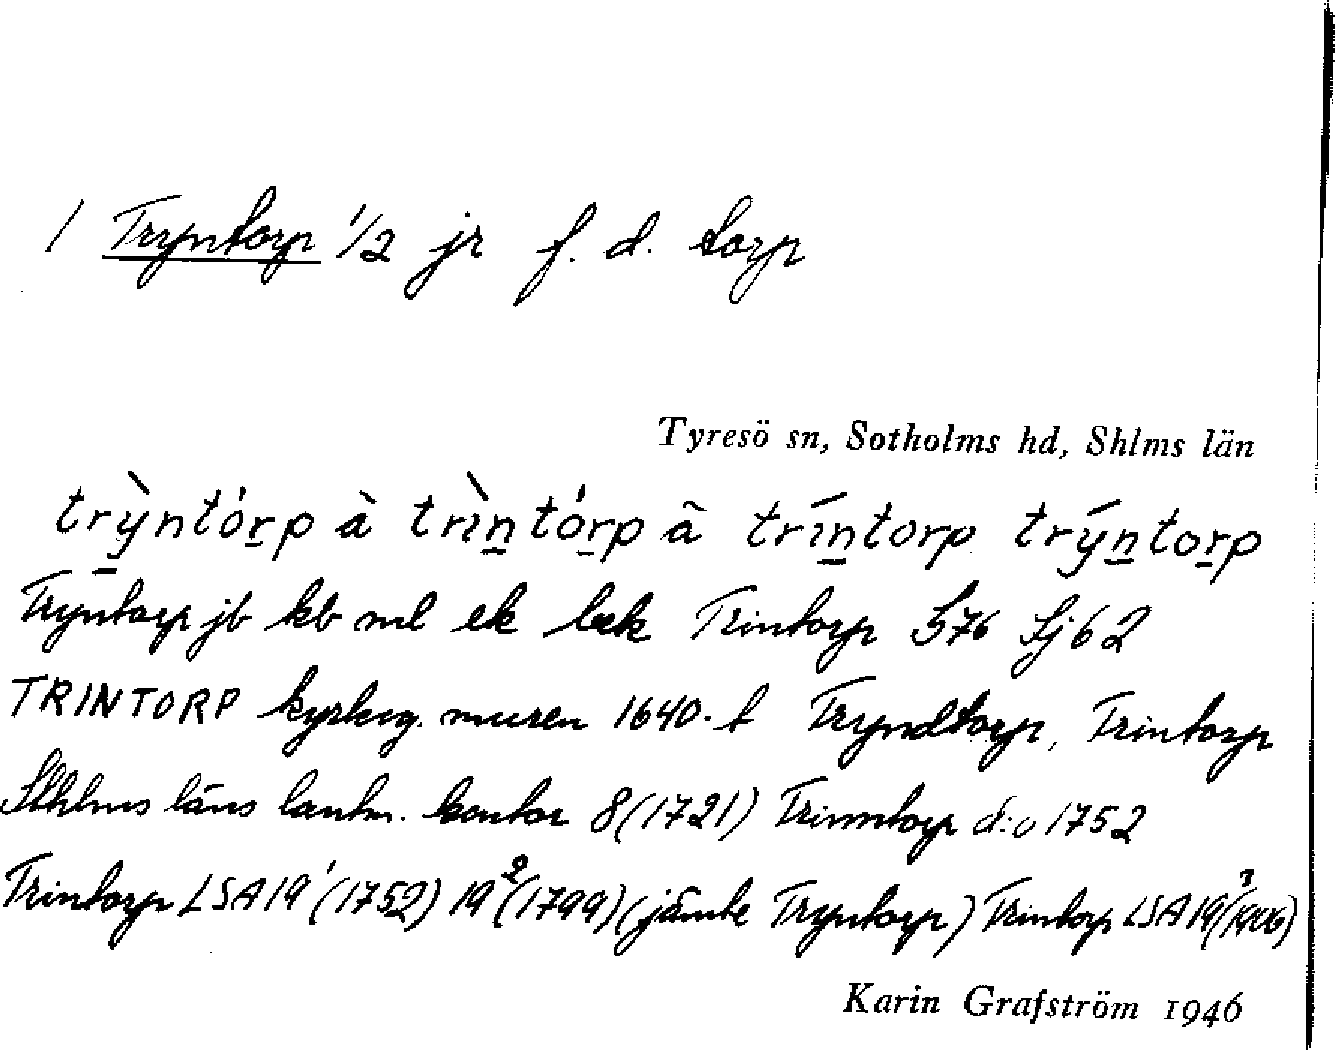 1 Tryntorp 1/2 jr f. d. torp
Tyresö sn, Sotholms hd, Shlms län
trỳntórp à trìntórp ā tríntorp trýntorp
Tryntorp jb kb ml ek læk Trintorp S76 Sj62
TRINTORP kyrkog. muren 1640-t Tryndtorp, Trintorp
Sthlms läns lantm. kontor 8 (1721) Trinntorp d:o 1752
Trintorp LSA 19¹ (1752) 19² (1799) (jämte Tryntorp) Trintorp LSA 19³
Karin Grafström 1946